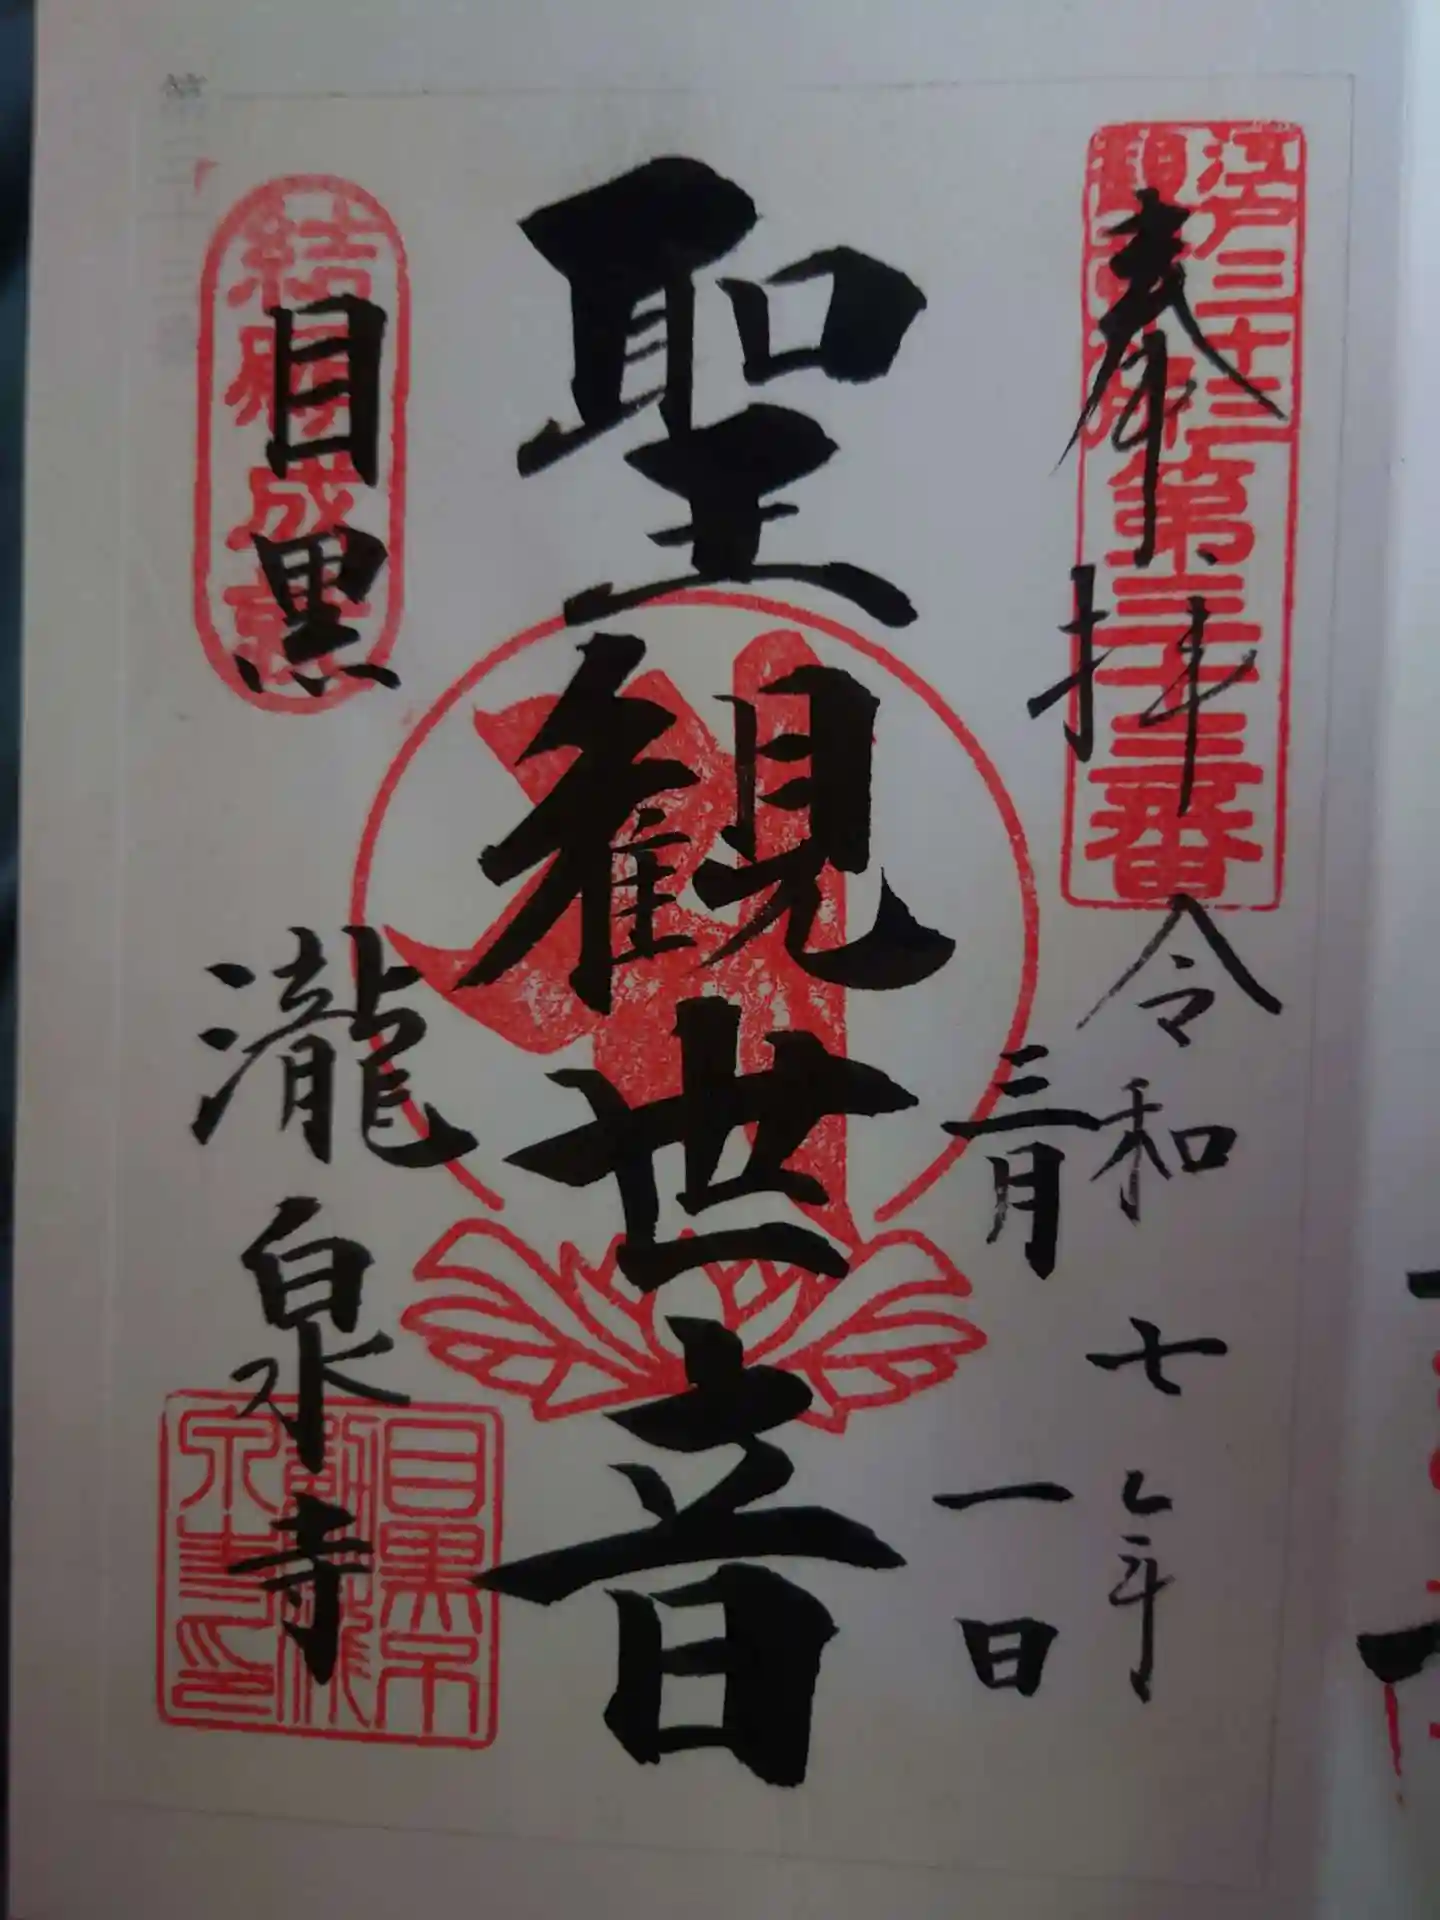 江戸三十三
観音札所
第三十三番
奉拝
令和七年
三月一日
聖観世音
結願成就
目黒
瀧泉寺
第三十三番